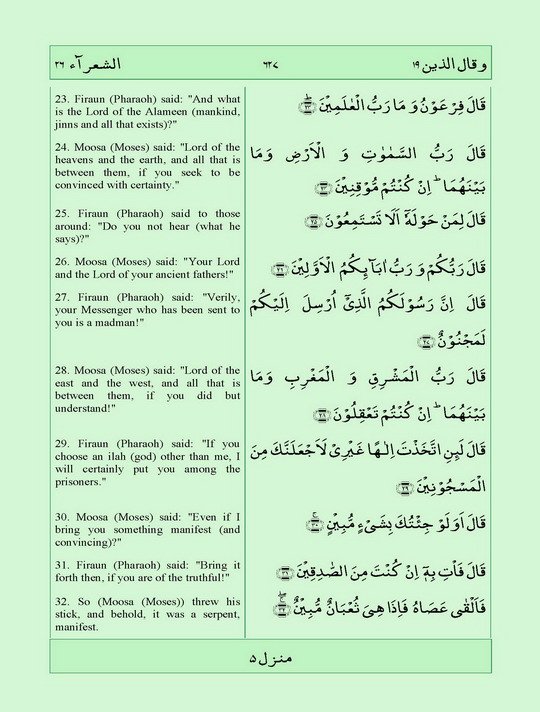 وقال الذين ١٩ ٦٢٧ الشعرآء ٢٦
23. Firaun (Pharaoh) said: "And what
is the Lord of the Alameen (mankind,
jinns and all that exists)?"
قَالَ فِرْعَوْنُ وَ مَا رَبُّ الْعٰلَمِيْنَ ؕ ﴿۲۳﴾
24. Moosa (Moses) said: "Lord of the
heavens and the earth, and all that is
between them, if you seek to be
convinced with certainty."
قَالَ رَبُّ السَّمٰوٰتِ وَ الْاَرْضِ وَمَا
بَيْنَهُمَا ؕ اِنْ كُنْتُمْ مُّوْقِنِيْنَ ﴿۲۴﴾
25. Firaun (Pharaoh) said to those
around: "Do you not hear (what he
says)?"
قَالَ لِمَنْ حَوْلَهٗۤ اَلَا تَسْتَمِعُوْنَ ﴿۲۵﴾
26. Moosa (Moses) said: "Your Lord
and the Lord of your ancient fathers!"
قَالَ رَبُّكُمْ وَ رَبُّ اٰبَآىِٕكُمُ الْاَوَّلِيْنَ ﴿۲۶﴾
27. Firaun (Pharaoh) said: "Verily,
your Messenger who has been sent to
you is a madman!"
قَالَ اِنَّ رَسُوْلَكُمُ الَّذِيْۤ اُرْسِلَ اِلَيْكُمْ
لَمَجْنُوْنٌ ﴿۲۷﴾
28. Moosa (Moses) said: "Lord of the
east and the west, and all that is
between them, if you did but
understand!"
قَالَ رَبُّ الْمَشْرِقِ وَ الْمَغْرِبِ وَمَا
بَيْنَهُمَا ؕ اِنْ كُنْتُمْ تَعْقِلُوْنَ ﴿۲۸﴾
29. Firaun (Pharaoh) said: "If you
choose an ilah (god) other than me, I
will certainly put you among the
prisoners."
قَالَ لَىِٕنِ اتَّخَذْتَ اِلٰـهًا غَيْرِيْ لَاَجْعَلَنَّكَ مِنَ
الْمَسْجُوْنِيْنَ ﴿۲۹﴾
30. Moosa (Moses) said: "Even if I
bring you something manifest (and
convincing)?"
قَالَ اَوَلَوْ جِئْتُكَ بِشَيْءٍ مُّبِيْنٍ ۚ ﴿۳۰﴾
31. Firaun (Pharaoh) said: "Bring it
forth then, if you are of the truthful!"
قَالَ فَاْتِ بِهٖۤ اِنْ كُنْتَ مِنَ الصّٰدِقِيْنَ ﴿۳۱﴾
32. So (Moosa (Moses)) threw his
stick, and behold, it was a serpent,
manifest.
فَاَلْقٰى عَصَاهُ فَاِذَا هِىَ ثُعْبَانٌ مُّبِيْنٌ ۚۖ ﴿۳۲﴾
منزل ۵